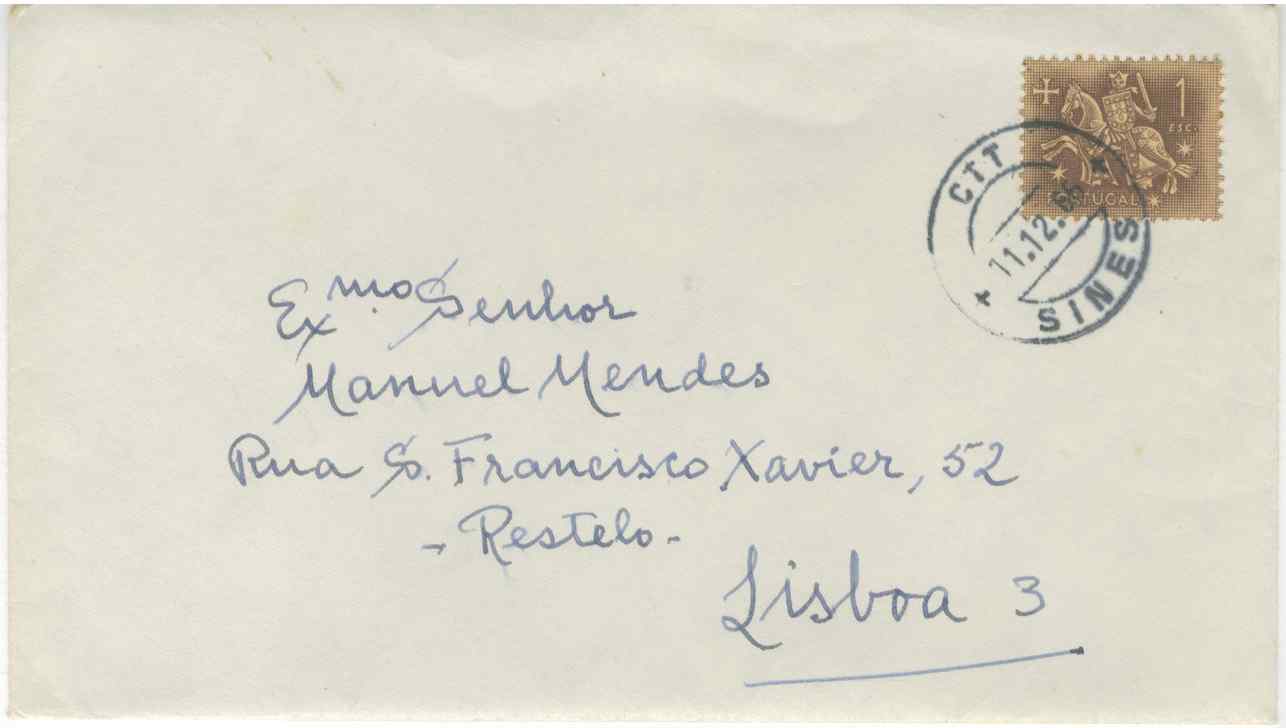 1
ESC.
PORTUGAL
CTT
11.12.66
SINES
Exmo. Senhor
Manuel Mendes
Rua S. Francisco Xavier, 52
- Restelo -
Lisboa 3